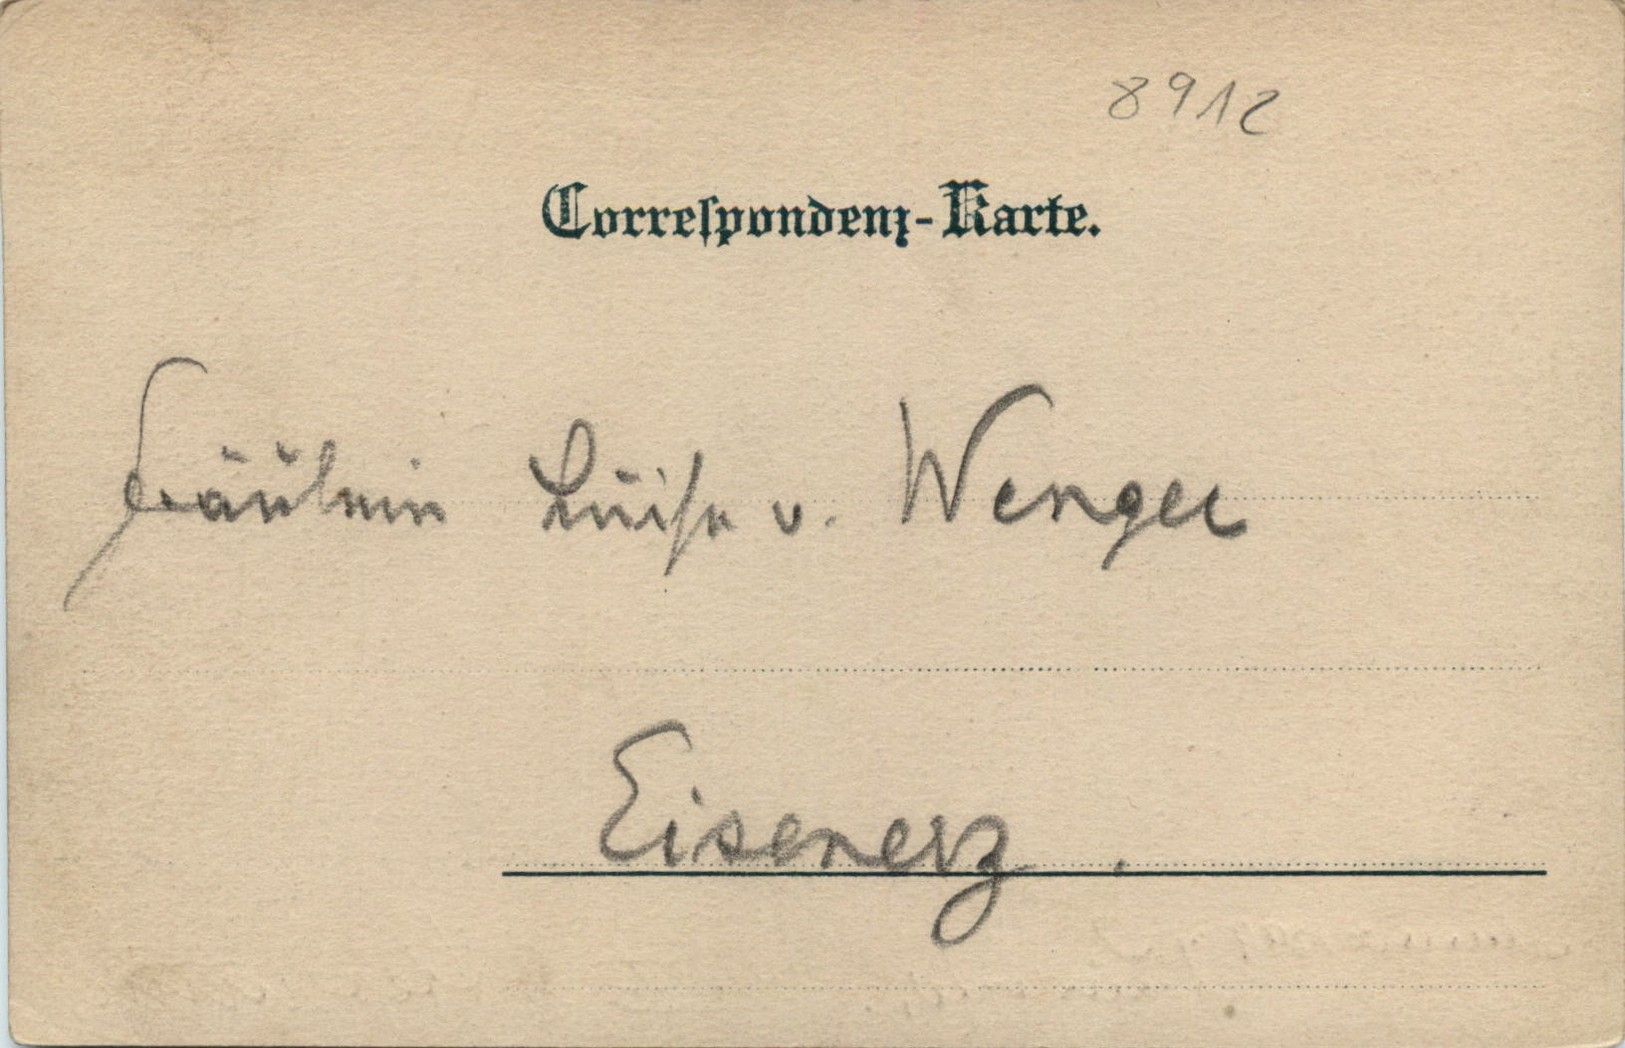 8912
Correspondenz-Karte.
Fräulein Luise v. Wenger
Eisenerz.